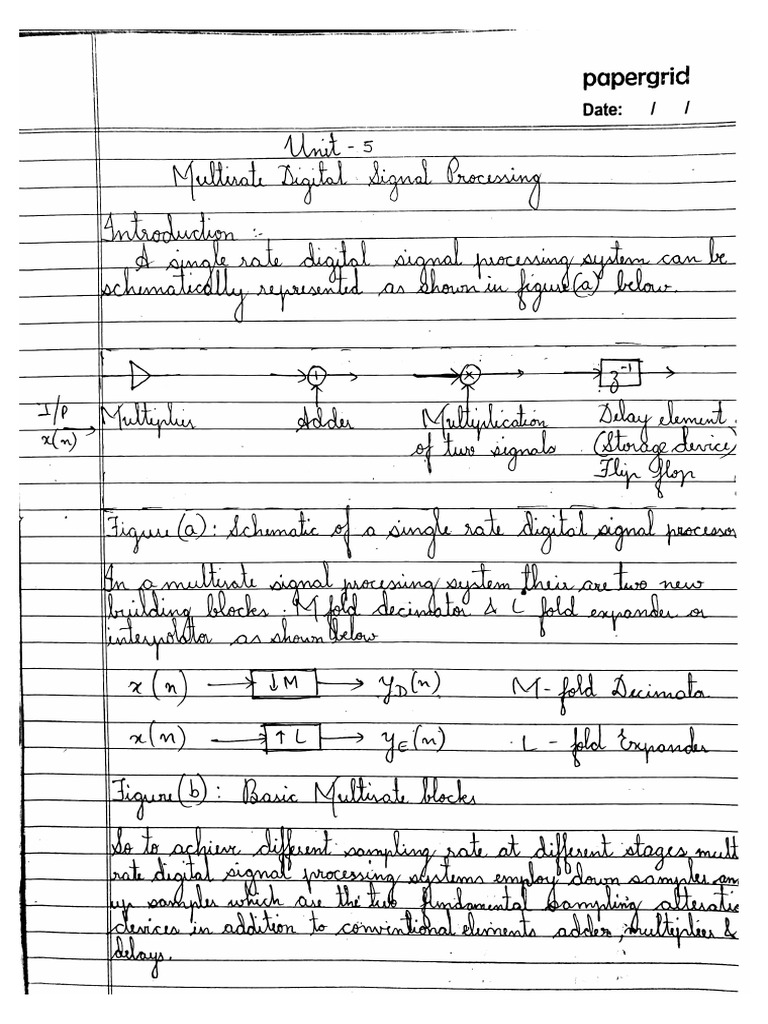 papergrid
Date: / /
Unit - 5
Multirate Digital Signal Processing
Introduction :-
A single rate digital signal processing system can be
schematically represented as shown in figure(a) below.
z⁻¹
I/P
x(n)
Multiplier Adder Multiplication Delay element
of two signals (Storage device)
Flip flop
Figure(a): Schematic of a single rate digital signal processor
In a multirate signal processing system their are two new
building blocks. M fold decimator & L fold expander or
interpolator as shown below
x(n) ↓M y_D(n) M- fold Decimator
x(n) ↑L y_E(n) L - fold Expander
Figure(b): Basic Multirate blocks
So to achieve different sampling rate at different stages mult
rate digital signal processing systems employ down samples an
up samples which are the two fundamental sampling alteratio
devices in addition to conventional elements adder, multipliers &
delays.